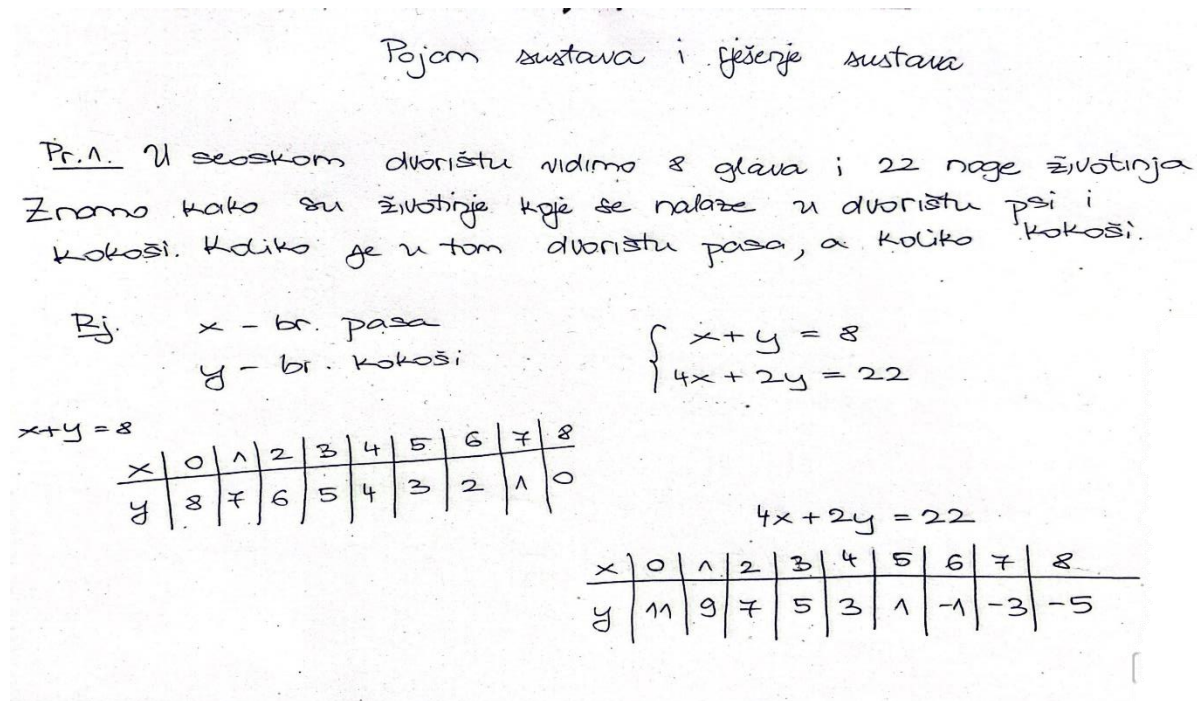 Pojam sustava i rješenje sustava
Pr.1. U seoskom dvorištu vidimo 8 glava i 22 noge životinja
Znamo kako su životinje koje se nalaze u dvorištu psi i
kokoši. Koliko je u tom dvorištu pasa, a koliko kokoši.
Rj. x - br. pasa
y - br. kokoši
{ x + y = 8
4x + 2y = 22
x+y = 8
x | 0 | 1 | 2 | 3 | 4 | 5 | 6 | 7 | 8
y | 8 | 7 | 6 | 5 | 4 | 3 | 2 | 1 | 0
4x + 2y = 22
x | 0 | 1 | 2 | 3 | 4 | 5 | 6 | 7 | 8
y | 11 | 9 | 7 | 5 | 3 | 1 | -1 | -3 | -5